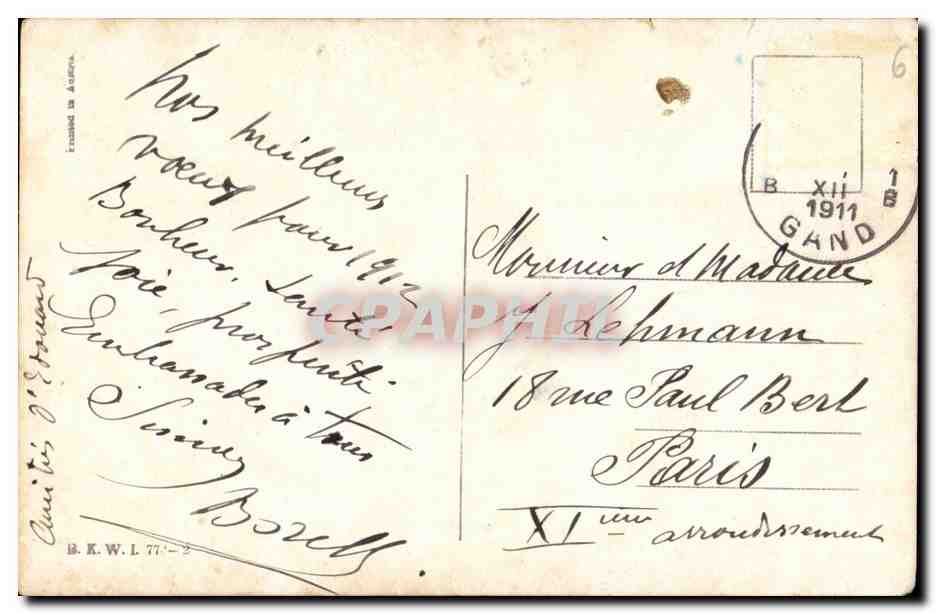 Printed in Austria
Nos meilleurs
vœux pour 1912
Bonheur, santé
joie, prospérité
Embrassades à tous
Simmes
Bozell
Amitiés d'Edouard
B.K.W.I. 77 - 2
6
B XII 1
1911 B
GAND
Monsieur et Madame
J Lehmann
18 rue Paul Bert
Paris
XIème arrondissement
CPAPHIL